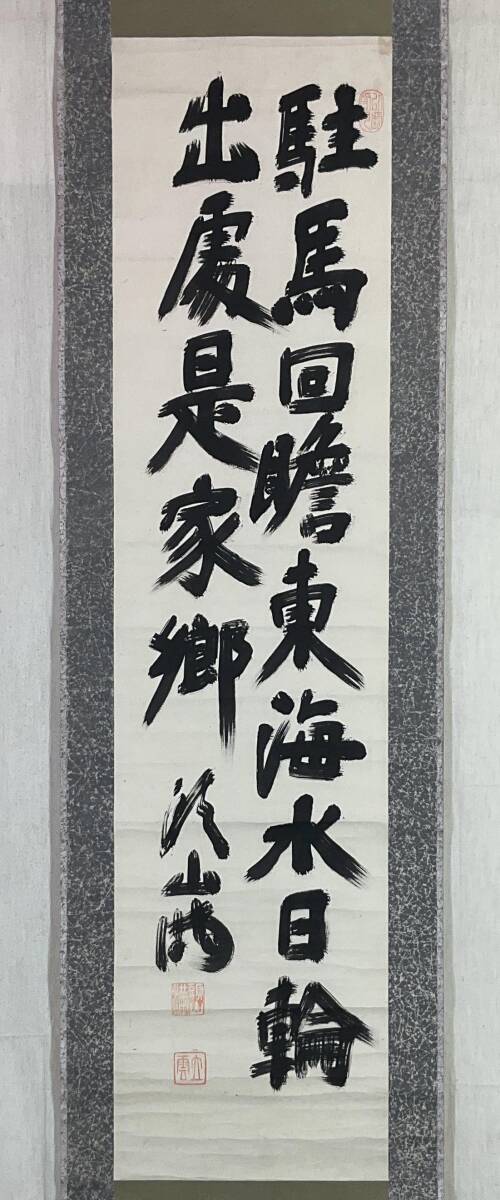 駐馬回瞻東海水日輪
出處是家鄉
山